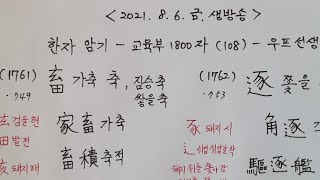 < 2021. 8. 6. 금. 생방송 >
한자 암기 - 교육부 1800자 (108) - 우프선생
(1761) 畜 가축 축, 짐승축 (1762) 逐 쫓을
.749 쌓을축 .753
玄 검을현 家畜 가축 豕 돼지시 角逐
田 밭전 辶 쉬엄쉬엄갈착
亥 돼지해 畜積 축적 돼지 뒤를 쫓아감 驅逐艦